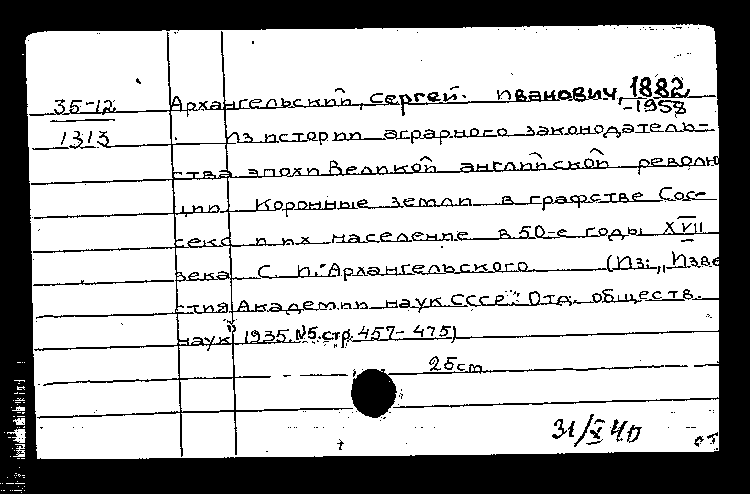 35-12 Архангельский, Сергей Иванович, 1882
-1958
1313 Из истории аграрного законодатель-
ства эпохи Великой английской револю
ции. Коронные земли в графстве Сос-
секс и их население в 50-е годы XVII
века С. И. Архангельского (Из: „Изве
стия Академии наук СССР". Отд. обществ.
наук 1935. №5. стр. 457-475)
25 cm
31/X 40
от